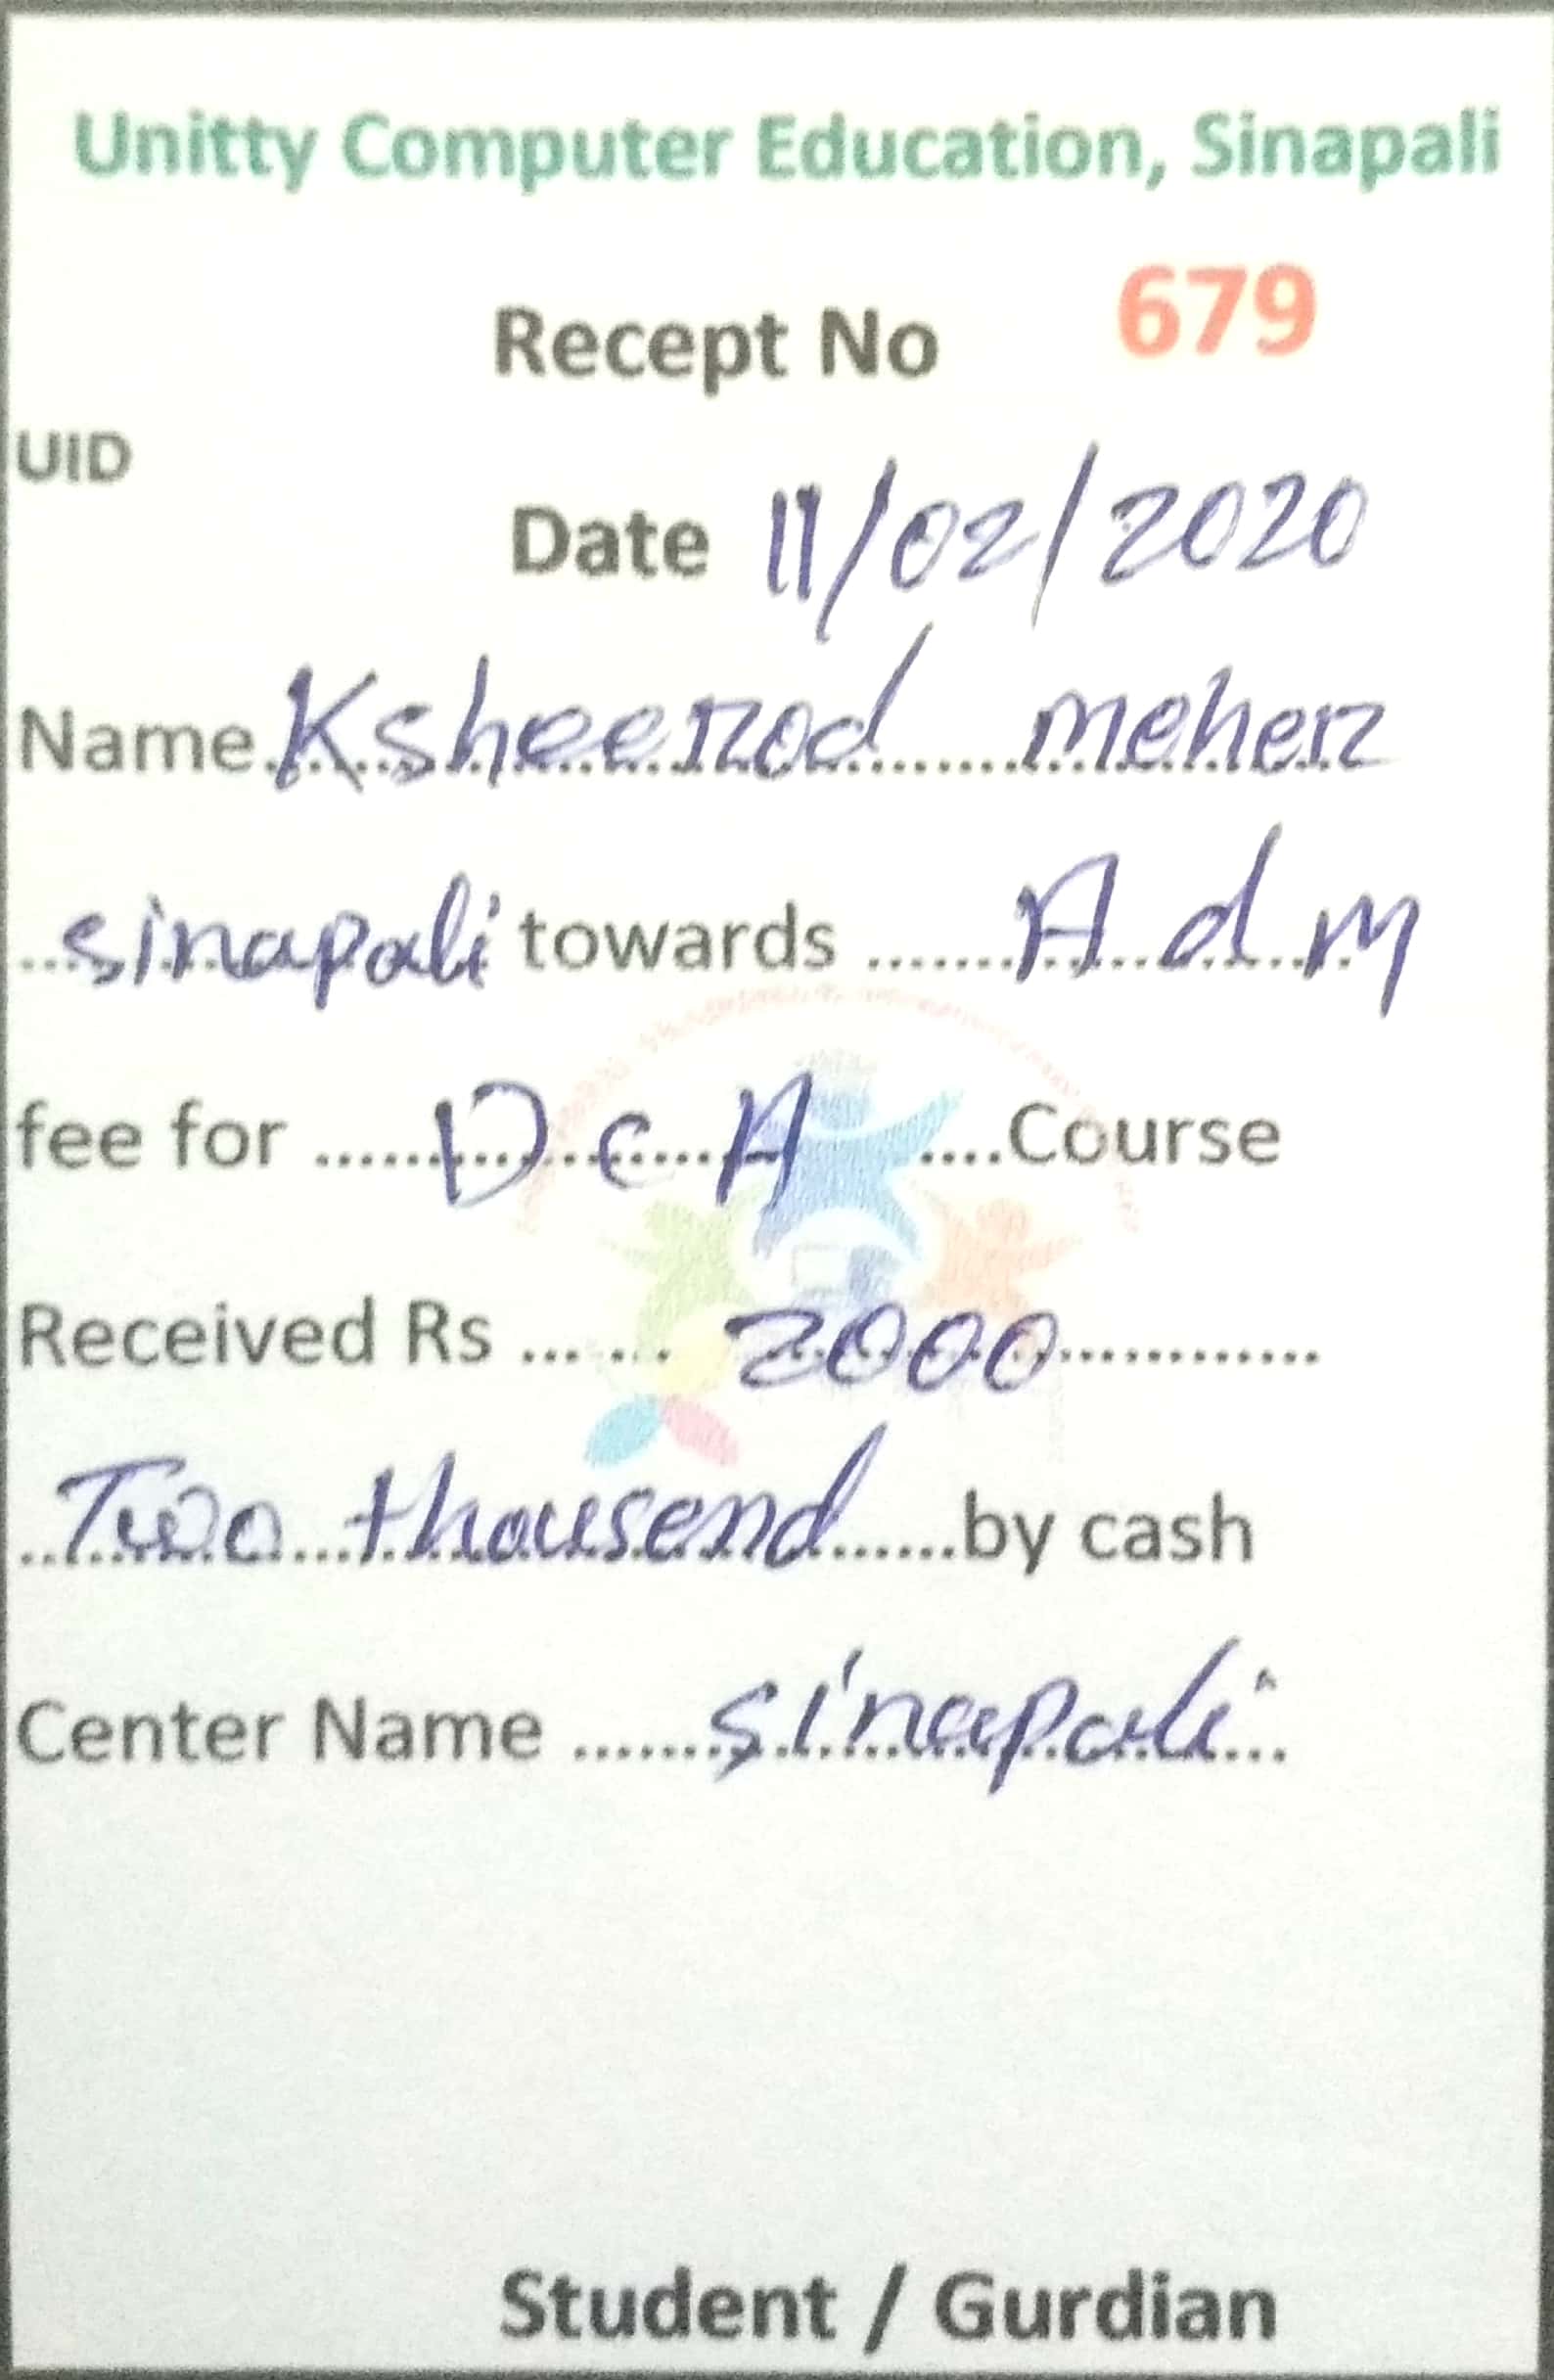 Unitty Computer Education, Sinapali
Recept No 679
UID
Date 11/02/2020
Name Ksheerod meher
sinapali towards ....... A d M
fee for ........ D C A ....Course
Received Rs ... ... 2000............
Two thousend ......by cash
Center Name ...... sinapali...
Student / Gurdian